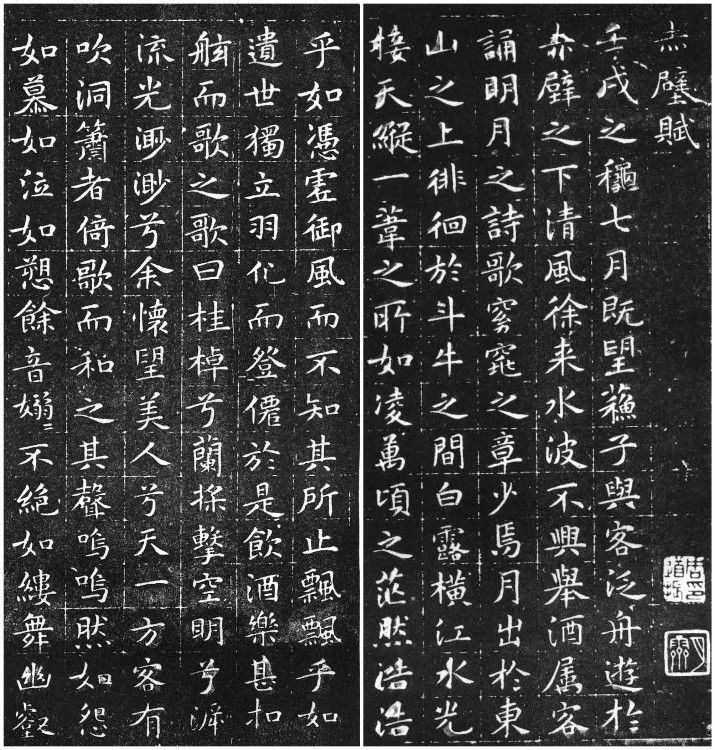 赤壁賦
壬戌之穐七月既望蘓子與客泛舟遊於
赤壁之下清風徐来水波不興舉酒属客
誦明月之詩歌窈窕之章少焉月出於東
山之上徘徊於斗牛之間白露橫江水光
接天縱一葦之所如凌萬頃之茫然浩浩
乎如憑虛御風而不知其所止飄飄乎如
遺世獨立羽化而登僊於是飲酒樂甚扣
舷而歌之歌曰桂棹兮蘭槳擊空明兮泝
流光渺渺兮余懷望美人兮天一方客有
吹洞簫者倚歌而和之其聲嗚嗚然如怨
如慕如泣如愬餘音嫋〻不絕如縷舞幽壑